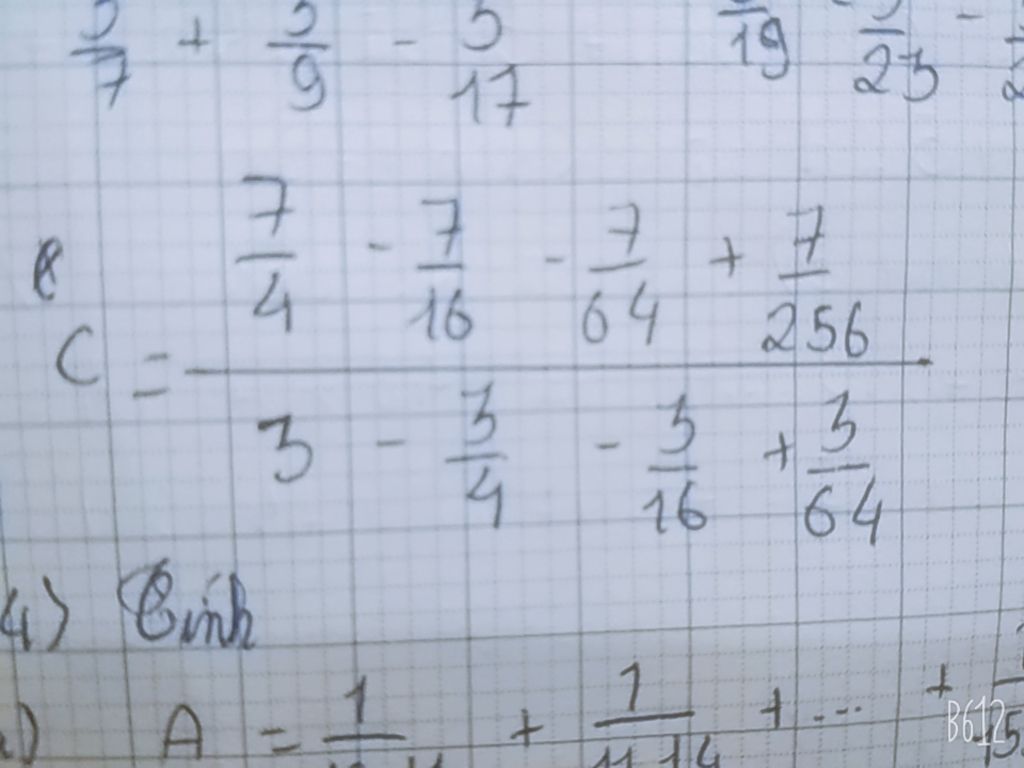 /7 + /9 - /17 /19 - /23 -
C = (7/4 - 7/16 - 7/64 + 7/256) / (3 - 3/4 - 3/16 + 3/64)
4) Tính
A = 1/ + 1/11.14 + ... +
B612